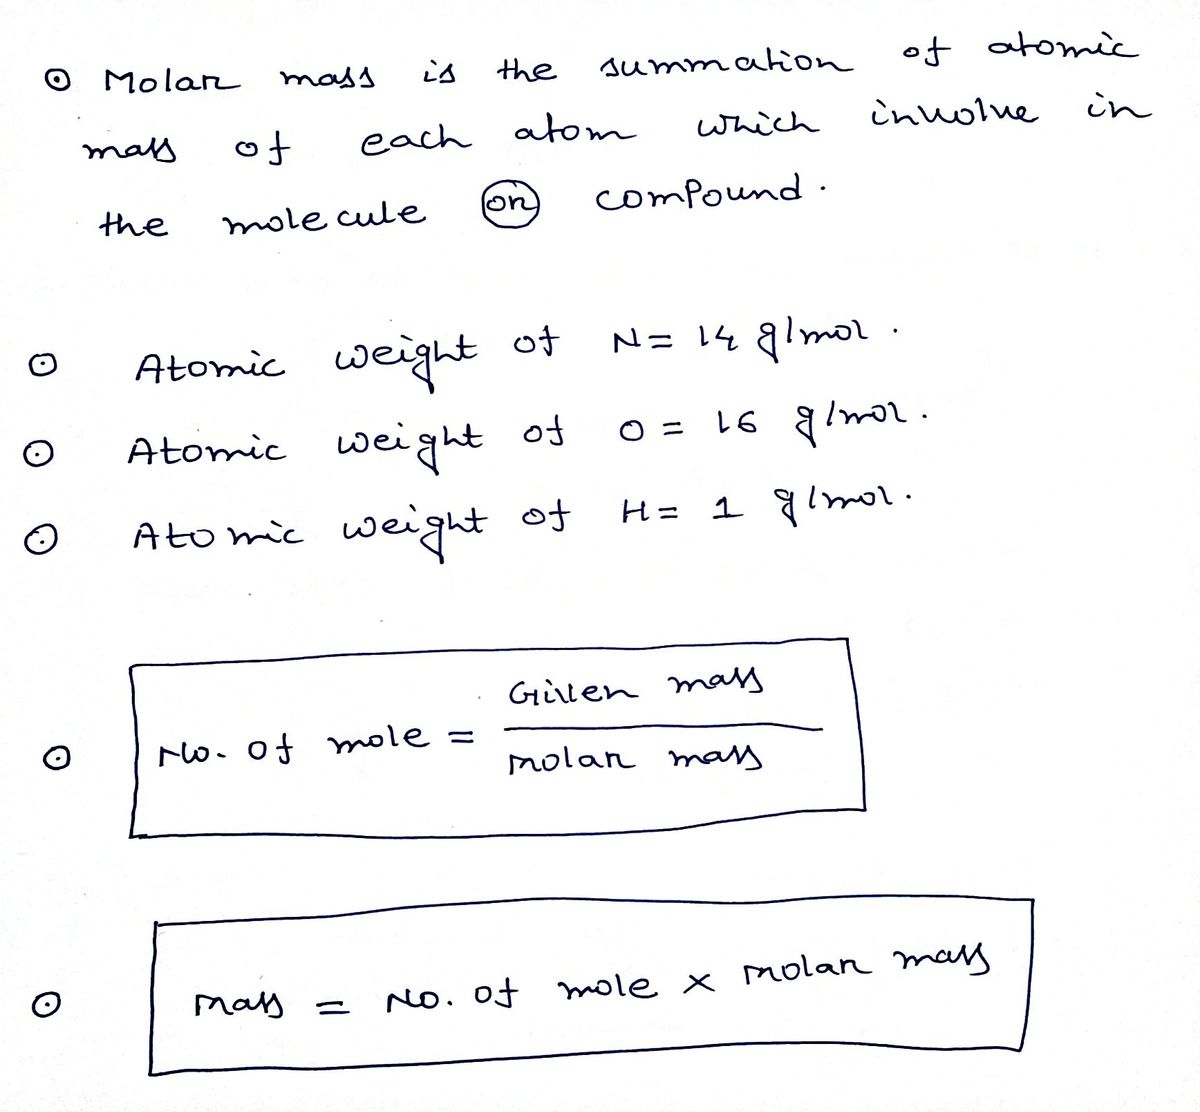 ⊙ Molar mass is the summation of atomic
mass of each atom which involve in
the molecule or compound.
⊙ Atomic weight of N = 14 g/mol.
⊙ Atomic weight of O = 16 g/mol.
⊙ Atomic weight of H = 1 g/mol.
Given mass
⊙ No. of mole =
molar mass
⊙ mass = No. of mole × molar mass